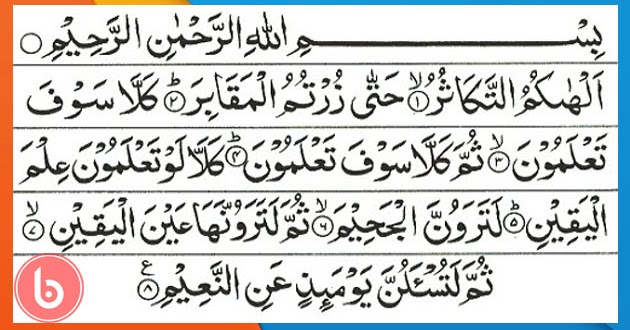 بِسْــــــــــــمِ اللهِ الرَّحْمٰنِ الرَّحِيْمِ ○
اَلْهٰىكُمُ التَّكَاثُرُ ۙ﴿١﴾ حَتّٰى زُرْتُمُ الْمَقَابِرَ ؕ﴿٢﴾ كَلَّا سَوْفَ
تَعْلَمُوْنَ ۙ﴿٣﴾ ثُمَّ كَلَّا سَوْفَ تَعْلَمُوْنَ ؕ﴿٤﴾ كَلَّا لَوْ تَعْلَمُوْنَ عِلْمَ
الْيَقِيْنِ ؕ﴿٥﴾ لَتَرَوُنَّ الْجَحِيْمَ ۙ﴿٦﴾ ثُمَّ لَتَرَوُنَّهَا عَيْنَ الْيَقِيْنِ ۙ﴿٧﴾
ثُمَّ لَتُسْـَٔلُنَّ يَوْمَىِٕذٍ عَنِ النَّعِيْمِ ﴿٨﴾ ع
b